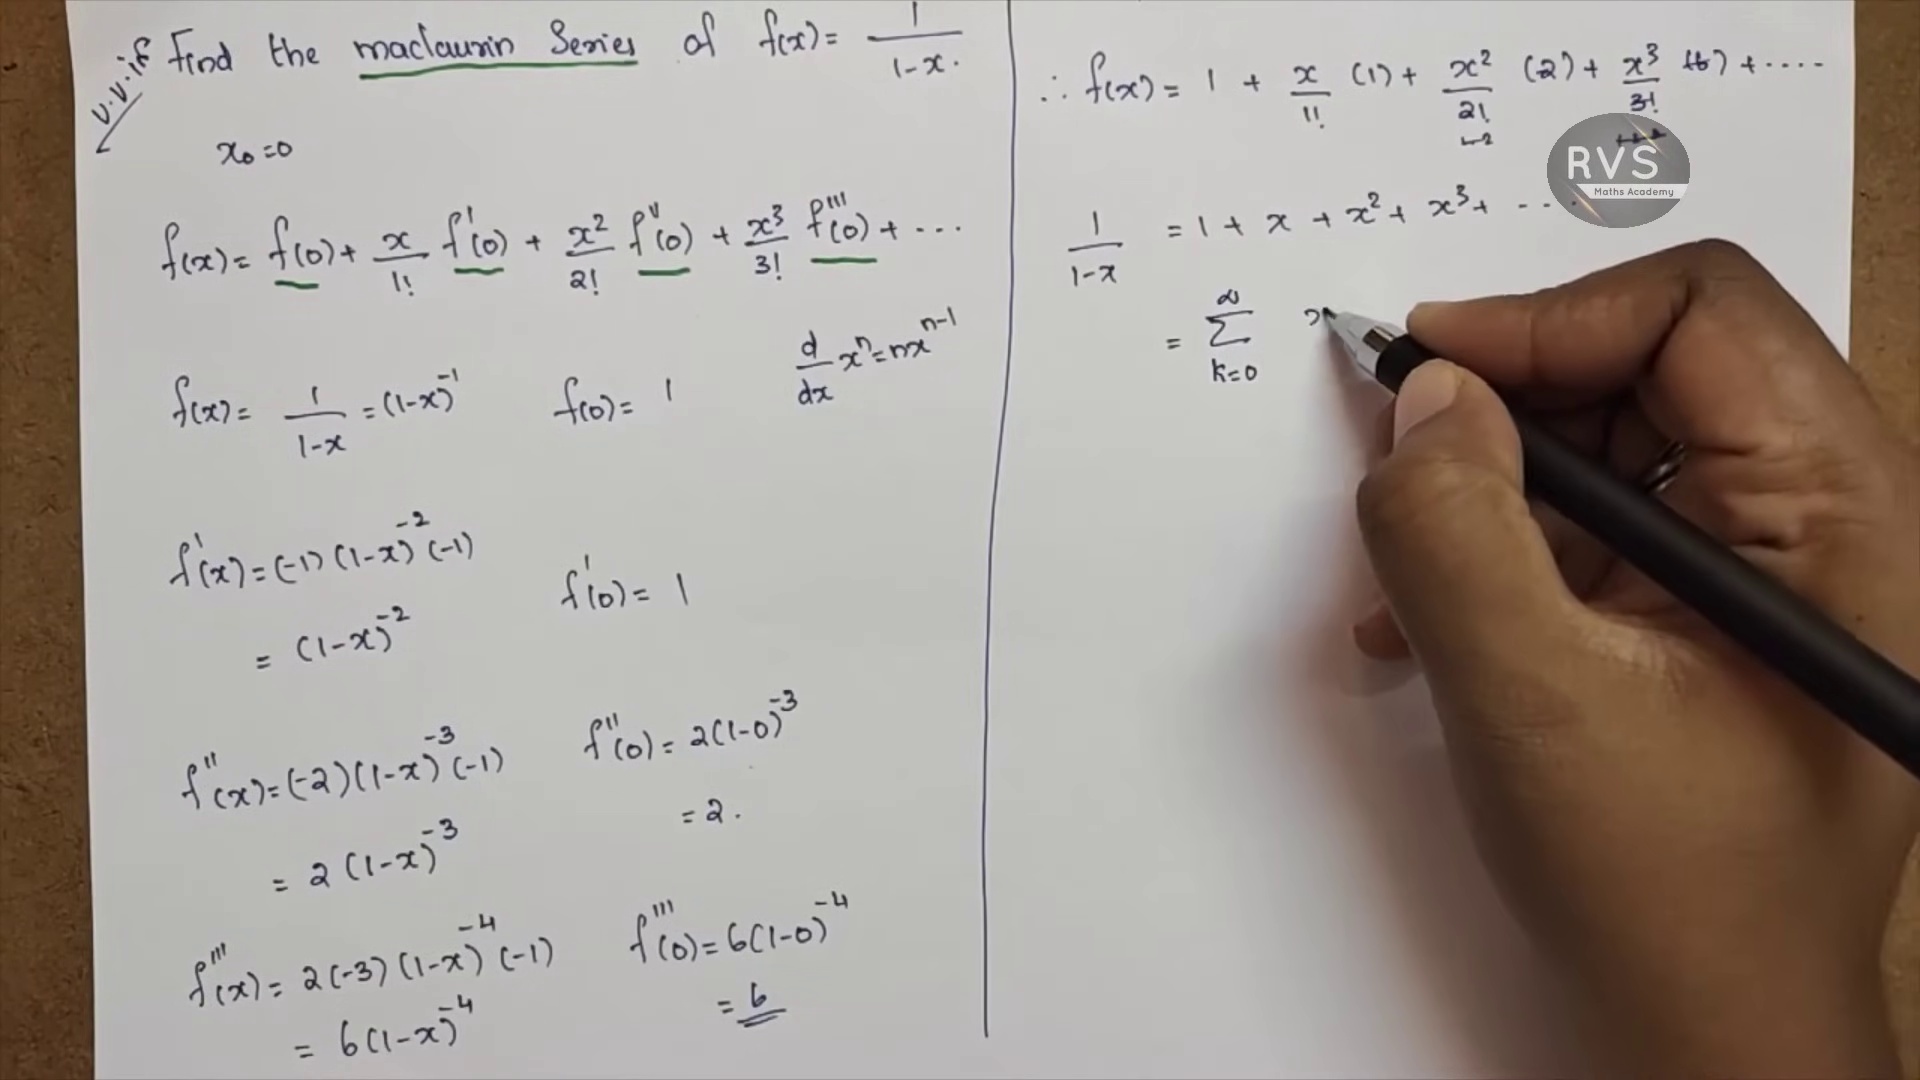 v.v.if
Find the maclaurin Series of f(x) = 1/(1-x).
x₀=0
f(x) = f(0) + x/1! f'(0) + x²/2! f''(0) + x³/3! f'''(0) + ...
d/dx xⁿ = nxⁿ⁻¹
f(x) = 1/(1-x) = (1-x)⁻¹ f(0) = 1
f'(x) = (-1)(1-x)⁻²(-1)
= (1-x)⁻² f'(0) = 1
f''(x) = (-2)(1-x)⁻³(-1) f''(0) = 2(1-0)⁻³
= 2(1-x)⁻³ = 2.
f'''(x) = 2(-3)(1-x)⁻⁴(-1) f'''(0) = 6(1-0)⁻⁴
= 6(1-x)⁻⁴ = 6
∴ f(x) = 1 + x/1! (1) + x²/2! (2) + x³/3! (6) + ....
RVS
Maths Academy
1/(1-x) = 1 + x + x² + x³ + ....
= ∞ Σ k=0 x